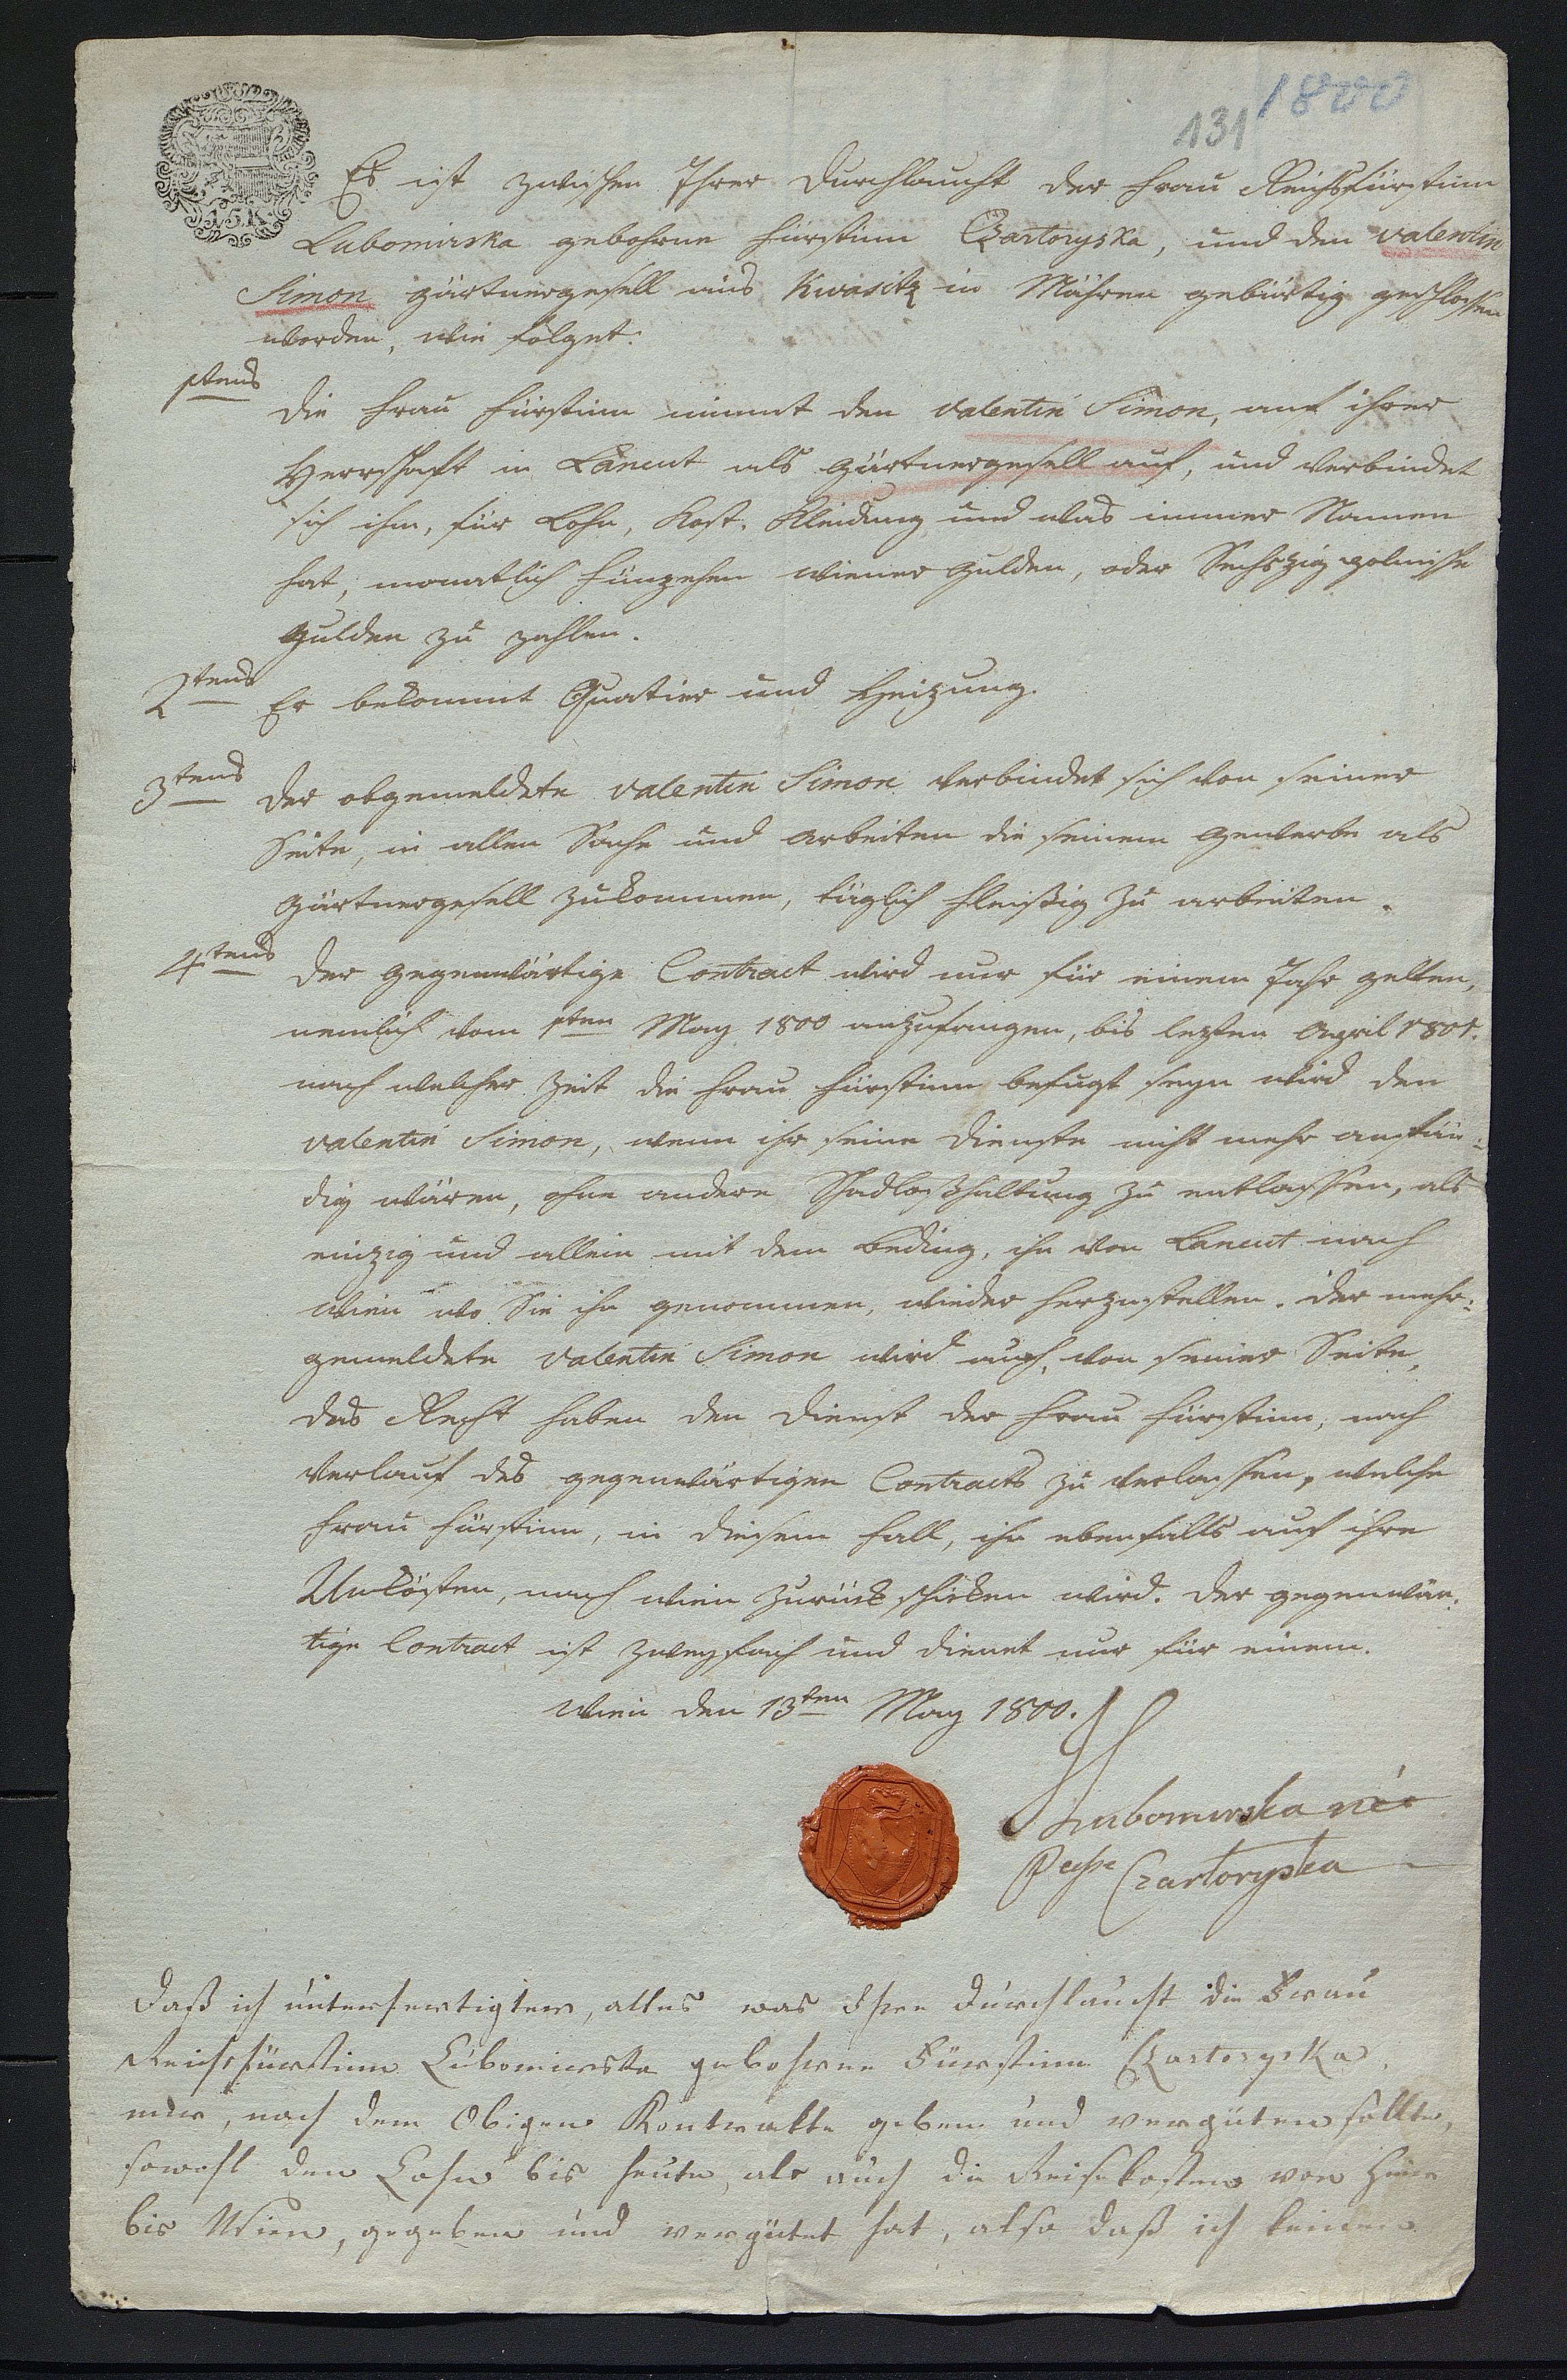 1800
131
15.K
Es ist zwischen Ihrer Durchlaucht der Frau Reichsfürstinn
Lubomirska gebohrne Fürstinn Czartoryska, und den Valentin
Simon Gärtnergesell aus Kwasitz in Mähren gebürtig geschlossen
worden, wie folget:
1tens Die Frau Fürstinn nimmt den Valentin Simon, auf ihrer
Herrschaft in Lancut als Gärtnergesell auf, und verbindet
sich ihm, für Lohn, Kost, Kleidung und was immer Namen
hat, monatlich fünzehen Wiener Gulden, oder Sechszig polnische
Gulden zu zahlen.
2tens Er bekommt Quatier und Heizung.
3tens Der obgemeldete Valentin Simon verbindet sich von seiner
Seite, in allen Sache und Arbeiten die seinem Gewerbe als
Gärtnergesell zukommen, täglich fleißig zu arbeiten.
4tens Der gegenwärtige Contract wird nur für einem Jahr gelten,
nemlich vom 1ten May 1800 anzufangen, bis lezten April 1801.
nach welcher Zeit die Frau Fürstinn befugt seyn wird den
Valentin Simon, wenn ihr seine Dienste nicht mehr anstän-
dig wären, ohne andere Schadloßhaltung zu entlassen, als
einzig und allein mit dem Beding, ihn von Lancut nach
Wien wo Sie ihn genommen, wieder herzustellen. Der mehr-
gemeldete Valentin Simon wird auch, von seiner Seite,
das Recht haben den Dienst der Frau Fürstinn, nach
Verlauf des gegenwärtigen Contracts zu verlassen, welche
Frau Fürstinn, in diesem Fall, ihn ebenfalls auf ihre
Unkösten, nach Wien zurück schicken wird. Der gegenwär-
tige Contract ist zweyfach und dienet nur für einem.
Wien den 13ten May 1800.
Lubomirska née
Pcsse Czartoryska
Daß ich unterfertigter, alles was Ihre Durchlaucht die Frau
Reichsfürstinn Lubomirska gebohrne Fürstinn Czartoryska,
mir, nach dem Obigen Kontrakte geben und vergüten sollte,
sowohl den Lohn bis heute, als auch die Reisekosten von hier
bis Wien, gegeben und vergütet hat, also daß ich keinen